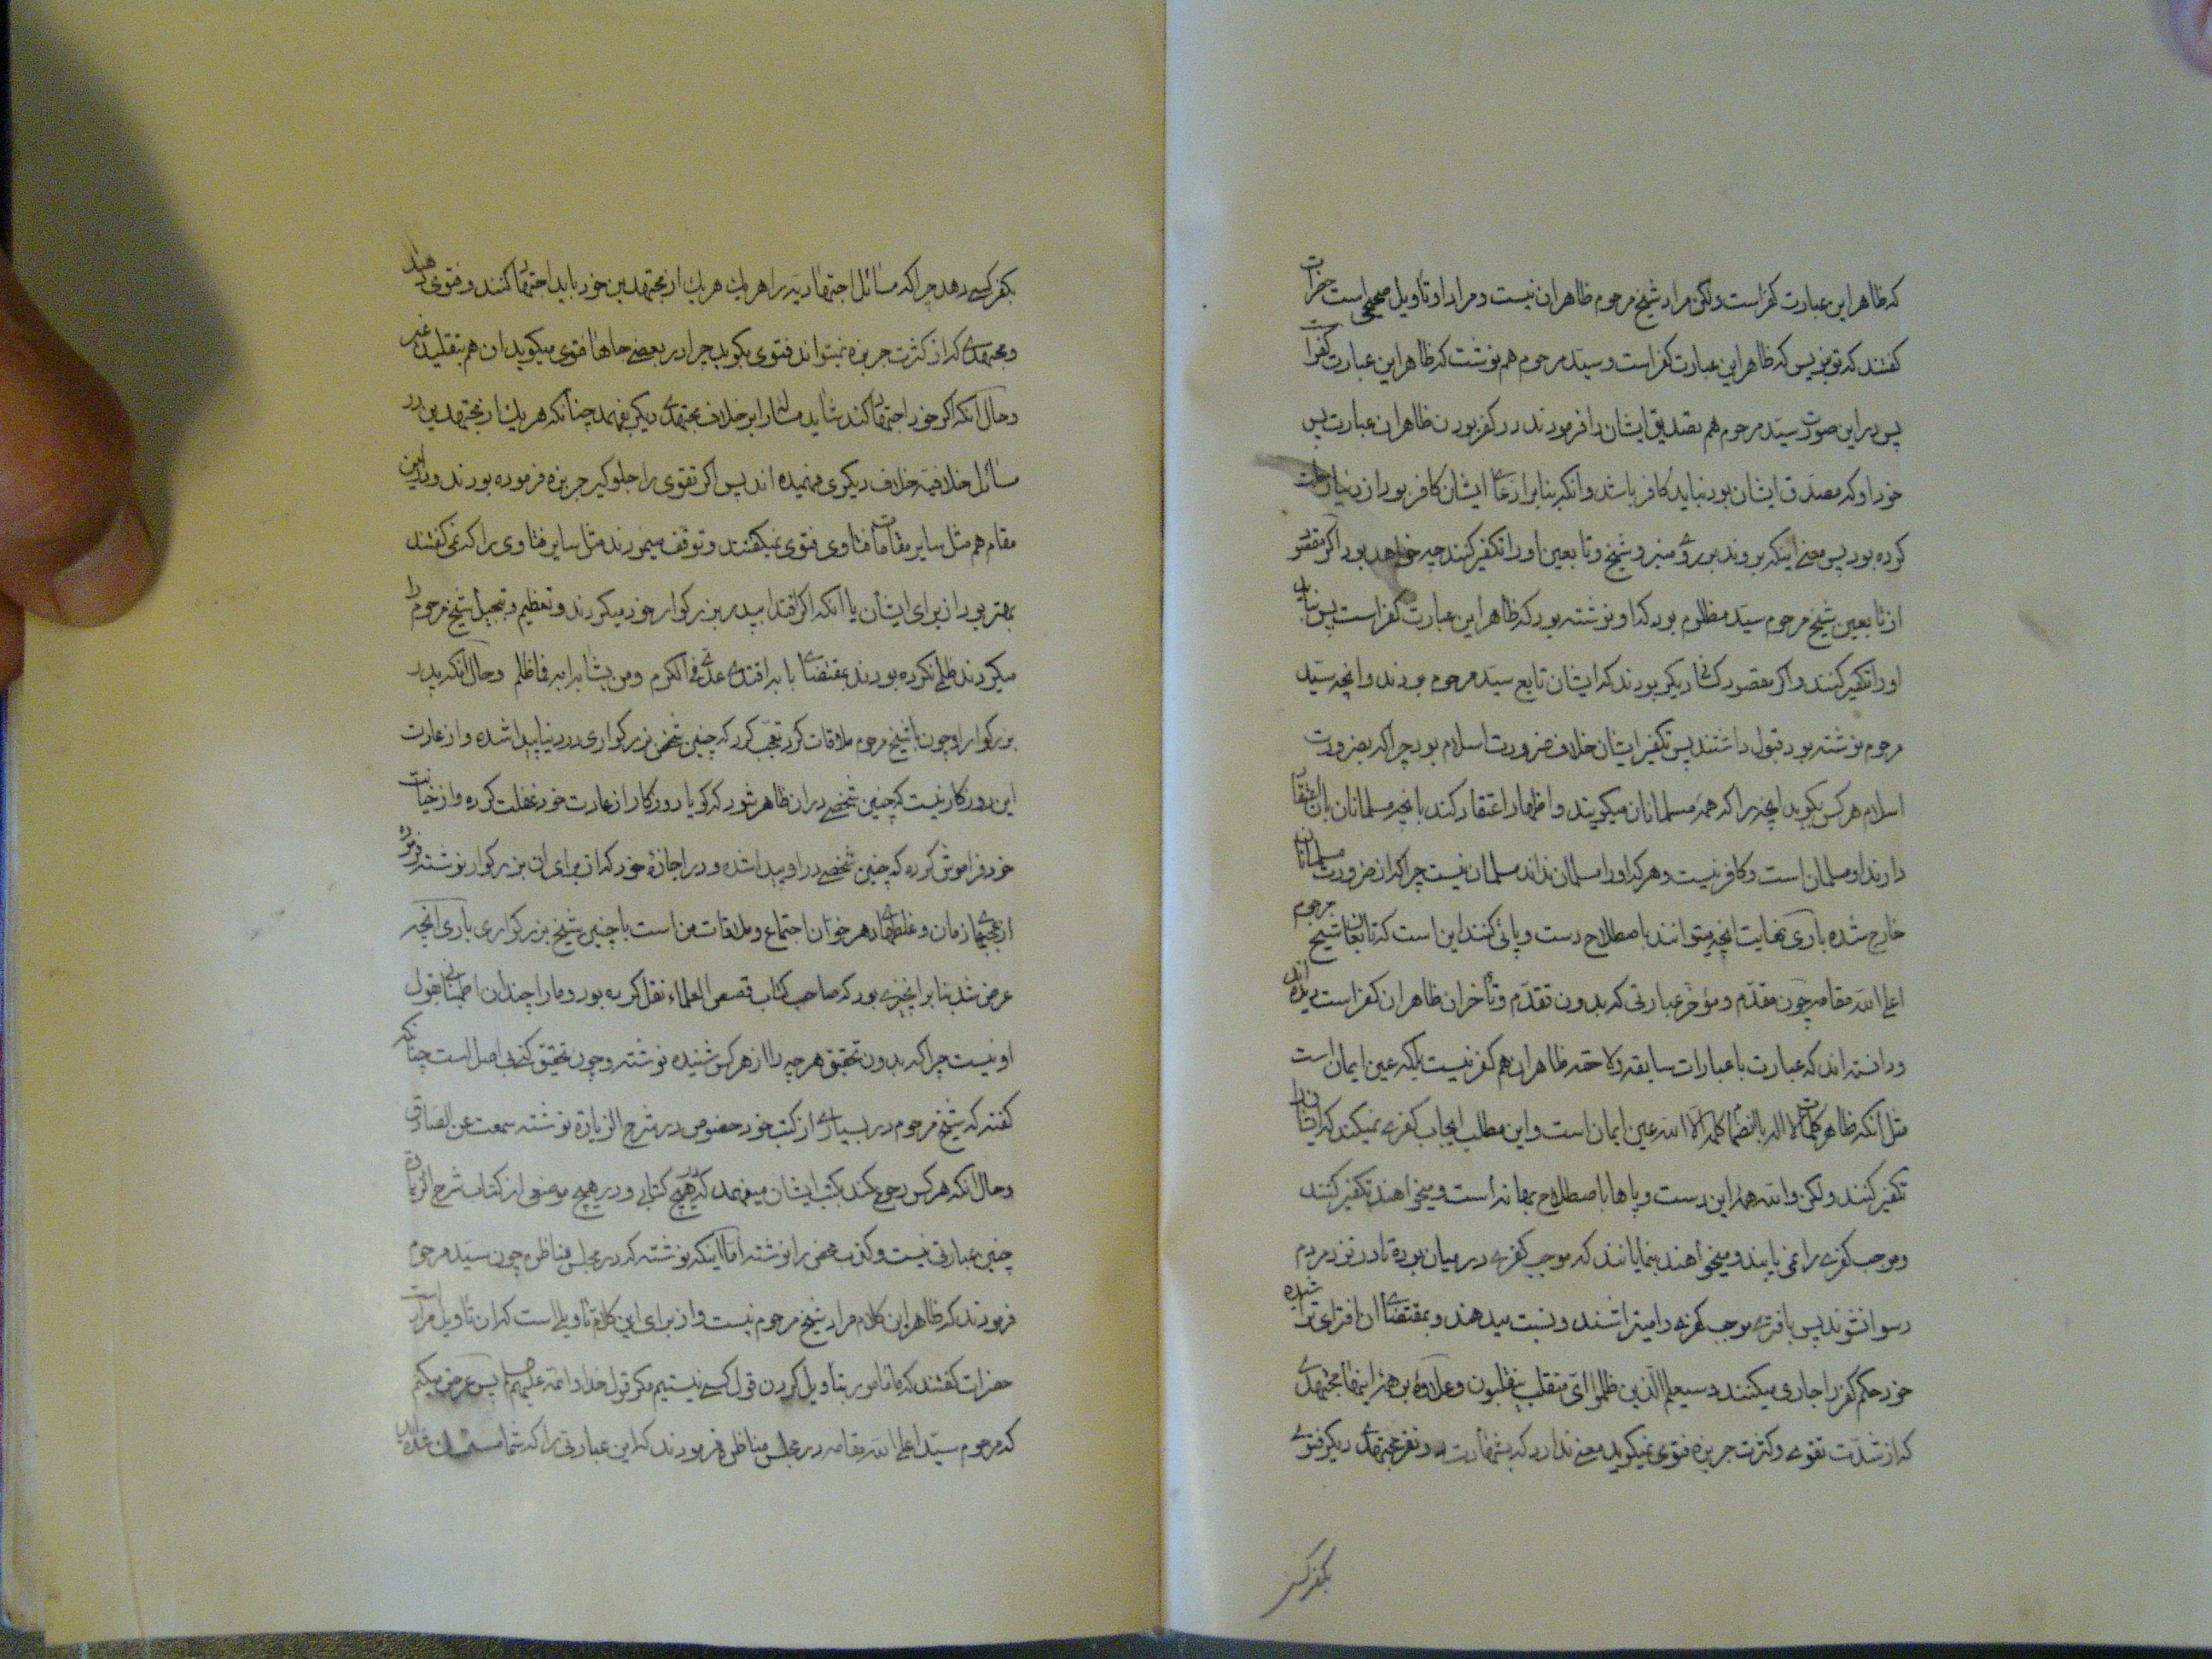 که ظاهر این عبارت کفر است ولکن مراد شیخ مرحوم ظاهر ان نیست و مراد او تأویل صحیحی است حضرات
کفتند که تو بنویس که ظاهر این عبارت کفر است و سید مرحوم هم نوشت که ظاهر این عبارت کفر است
پس در این صورت سید مرحوم هم تصدیق ایشان را فرمودند در کفر بودن ظاهر ان عبارت پس
خود او که مصدق ایشان بود نباید کافر باشد وانکه بنابر ادعای ایشان کافر بود از دنیا رحلت
کرده بود پس معنی اینکه بروند بر روی منبر و شیخ و تابعین او را تکفیر کنند چه خواهد بود اکر مقصود
از تابعین شیخ مرحوم سید مظلوم بود که او نوشته بود که ظاهر این عبارت کفر است پس نباید
او را تکفیر کنند و اکر مقصود کسان دیکر بودند که ایشان تابع سید مرحوم بودند و انچه سید
مرحوم نوشته بود قبول داشتند پس تکفیر ایشان خلاف ضرورت اسلام بود چرا که بضرورت
اسلام هر کس بکوید انچه را که همه مسلمانان میکویند و اظهار اعتقاد کند بانچه مسلمانان بان اعتقاد
دارند او مسلمان است و کافر نیست و هر که او را مسلمان نداند مسلمان نیست چرا که از ضرورت مسلمانان
خارج شده باری نهایت انچه میتوانند باصطلاح دست و پائی کنند این است که تابعان شیخ مرحوم
اعلی الله مقامه چون مقدم و مؤخر عبارتی که بدون تقدم و تأخر ان ظاهر ان کفر است دیده اند
و دانسته اند که عبارت با عبارات سابقه و لاحقه ظاهر ان هم کفر نیست بلکه عین ایمان است
مثل انکه ظاهر کلمات لا اله بانضمام کلمه الا الله عین ایمان است و این مطلب ایجاب کفری نمیکند که ایشان را
تکفیر کنند ولکن والله همه این دست و پاها باصطلاح بهانه است و میخواهند تکفیر کنند
و موجب کفری را نمی یابند و میخواهند بنمایانند که موجب کفری در میان بوده تا در نزد مردم
رسوا نشوند پس بافتری موجب کفری را میتراشند و نسبت میدهند و بمقتضای ان افترای تراشیده
خود حکم کفر را جاری میکنند و سیعلم الذین ظلموا ای منقلب ینقلبون و علاوه بر همه اینها مجتهدی
که از شدت تقوی و کثرت جربزه فتوی نمیکوید معنی ندارد که بشهادت دو نفر مجتهدی دیکر فتوی
بکفر کسی
بکفر کسی دهد چرا که مسائل اجتهادیه را هر یک هر یک از مجتهدین خود باید اجتهاد کنند و فتوی دهند
و مجتهدی که از کثرت جربزه نمیتواند فتوی بکوید چرا در بعضی جاها فتوی میکوید ان هم بتقلید غیر
و حال انکه اکر خود اجتهاد کند شاید مسئله را بر خلاف مجتهدی دیکر بفهمد چنانکه هر یک از مجتهدین در
مسائل خلافیه خلاف دیکری فهمیده اند پس اکر تقوی را جلوکیر جربزه فرموده بودند و در این
مقام هم مثل سایر مقامات فتاوی فتوی نمیکفتند و توقف مینمودند مثل سایر فتاوی را که نمی کفتند
بهتر بود از برای ایشان یا انکه اکر اقتدا بپدر بزرکوار خود میکردند و تعظیم و تبجیل شیخ مرحوم را
میکردند ظلمی نکرده بودند بمقتضای بابه اقتدی عدی فی الکرم ومن یشابه ابه فما ظلم و حال انکه پدر
بزرکوار او چون با شیخ مرحوم ملاقات کرد تعجب کرد که چنین شخص بزرکواری در دنیا پیدا شده و از عادت
این روزکار نیست که چنین شخصی در ان ظاهر شود که کویا روزکار از عادت خود غفلت کرده و از خیانت
خود فراموش کرده که چنین شخصی در او پیدا شده و در اجازه خود که از برای ان بزرکوار نوشته فرموده
از عجبهای زمان و غلطهای دهر خوان اجتماع و ملاقات من است با چنین شیخ بزرکواری باری انچه
عرض شد بنابر انچیزی بود که صاحب کتاب قصص العلماء نقل کرده بود و ما را چندان اطمینانی بقول
او نیست چرا که بدون تحقیق هر چه را از هر کس شنیده نوشته و چون تحقیق کنی بی اصل است چنانکه
کفته که شیخ مرحوم در بسیاری از کتب خود خصوص در شرح الزیاره نوشته سمعت عن الصادق
و حال انکه هر کس رجوع کند بکتب ایشان میفهمد که در هیچ کتابی و در هیچ موضعی از کتاب شرح الزیاره
چنین عبارتی نیست و کذب محض را نوشته اما اینکه نوشته که در مجلس مناظره چون سید مرحوم
فرمودند که ظاهر این کلام مراد شیخ مرحوم نیست و از برای این کلام تأویلی است که ان تأویل مراد است
حضرات کفتند که ماها مامور بتأویل کردن قول کسی نیستیم مکر قول خدا و ائمه علیهم السلام پس عرض میکنم
که مرحوم سید اعلی الله مقامه در مجلس مناظره فرمودند که این عبارتی را که شما